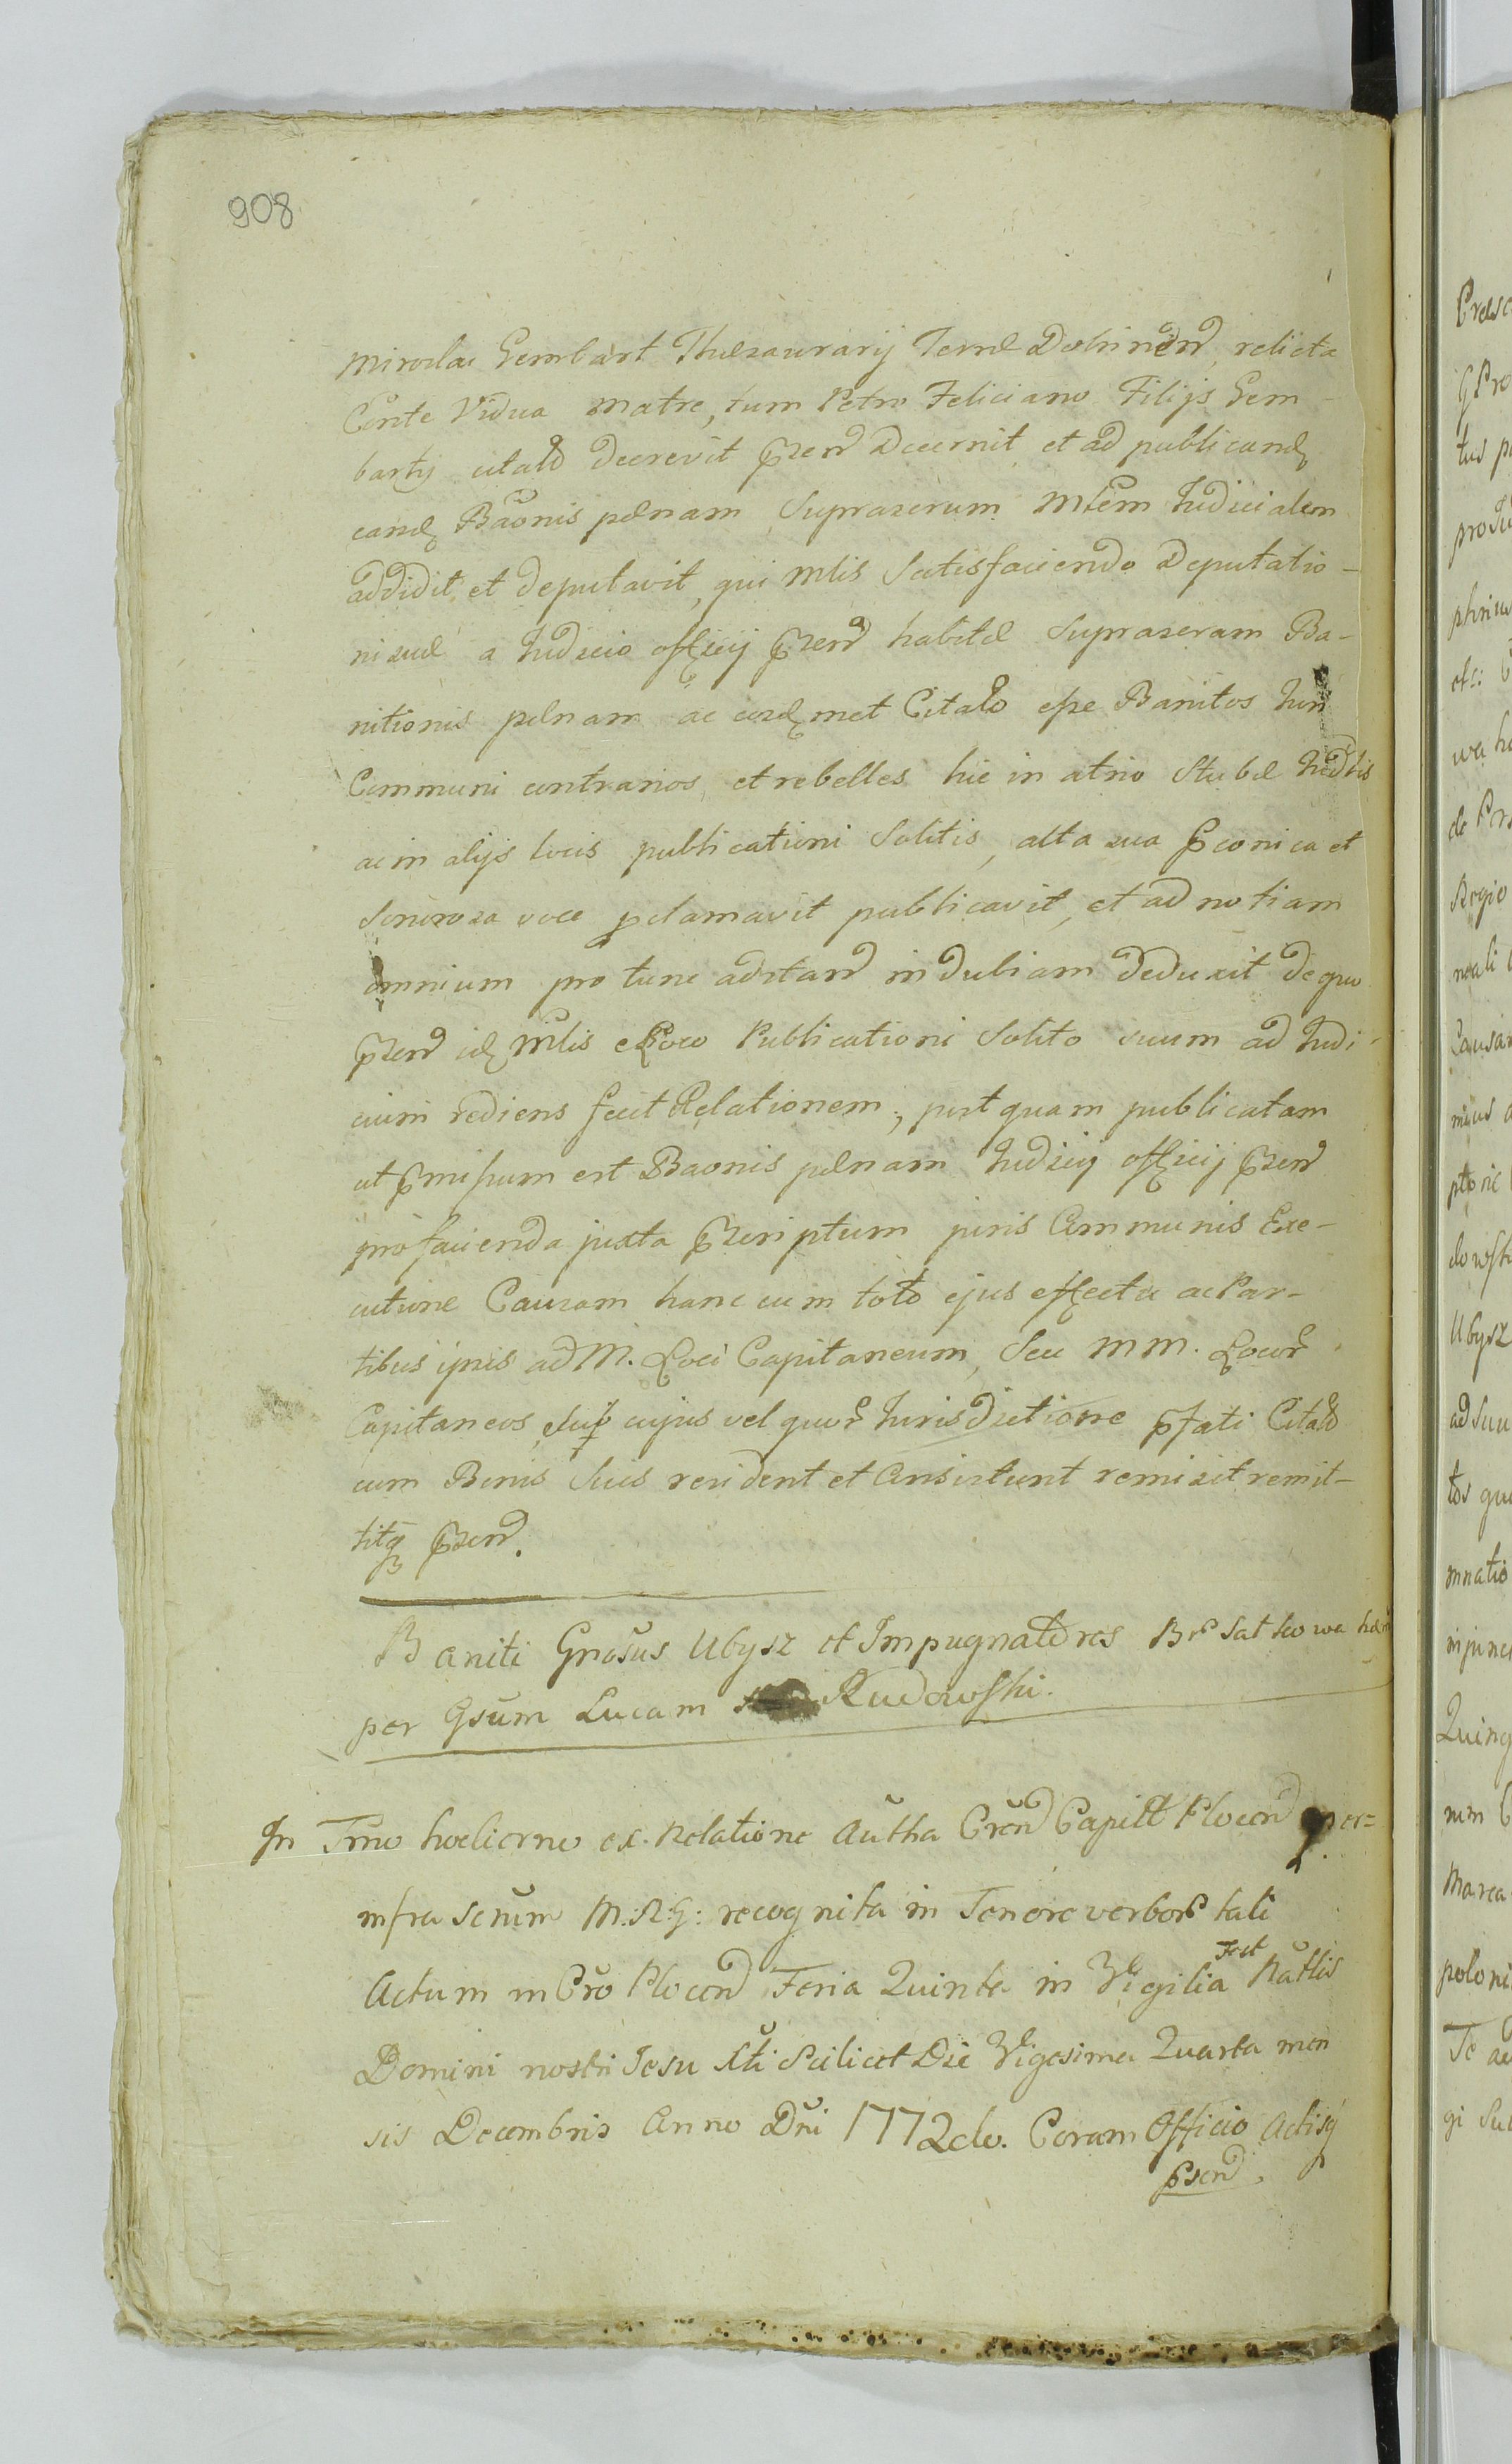 908
Miroslai Gembart Thesaurarij Terrae Dobrinen relicta
Conte Vidua Matre, tum Petro Feliciano Filijs Gem-
bartij citatis decrevit przen Decernit et ad publicand
eand Baonis paenam Suprascrum Mlem Judicialem
addidit et deputavit, qui Mlis Satisfaciendo Deputatio-
ni suae a Judicio officij przen habitae Suprascram Ba-
nitionis paenam ac eosdmet Citatos esse Banitos Juri
Communi contrarios, et rebelles hic in atrio Stubae Judlis
ac in alijs locis publicationi Solitis, alta sua pconica et
Sonorosa voce pclamavit publicavit, et ad notiam
omnium pro tunc adstan in dubiam deduxit de quo
przen id Mlis e Loco Publicationi Solito suum ad Judi-
cium rediens fecit Relationem, post quam publicatam
ut pmissum est Baonis paenam Judicij officij przen
pro facienda juxta pscriptum juris Communis Exe-
cutione Causam hanc cum toto ejus effectu ac Par-
tibus ipsis ad M. Loci Capitaneum, Seu MM. Locor
Capitaneos, cujus vel quor Jurisdictione pfati Citati
cum Bonis Suis resident et Consistunt remisit remit-
titq przen.
Baniti Gnosus Ubysz et Impugnatores Br Satkowa haer
per Gsum Lucam Rudowski.
In Tmno hodierno ex Relatione Autha Cren Capitl Plocen per
infra scrum M.R.G: recognita in Tenore verbor tali
Actum in Cro Plocen Feria Quinta in Vigilia Fest Natlis
Domini nostri Jesu Xti Scilicet Die Vigesima Quarta men
sis Decembris Anno Dni 1772do. Coram Officio Actisq
psen.